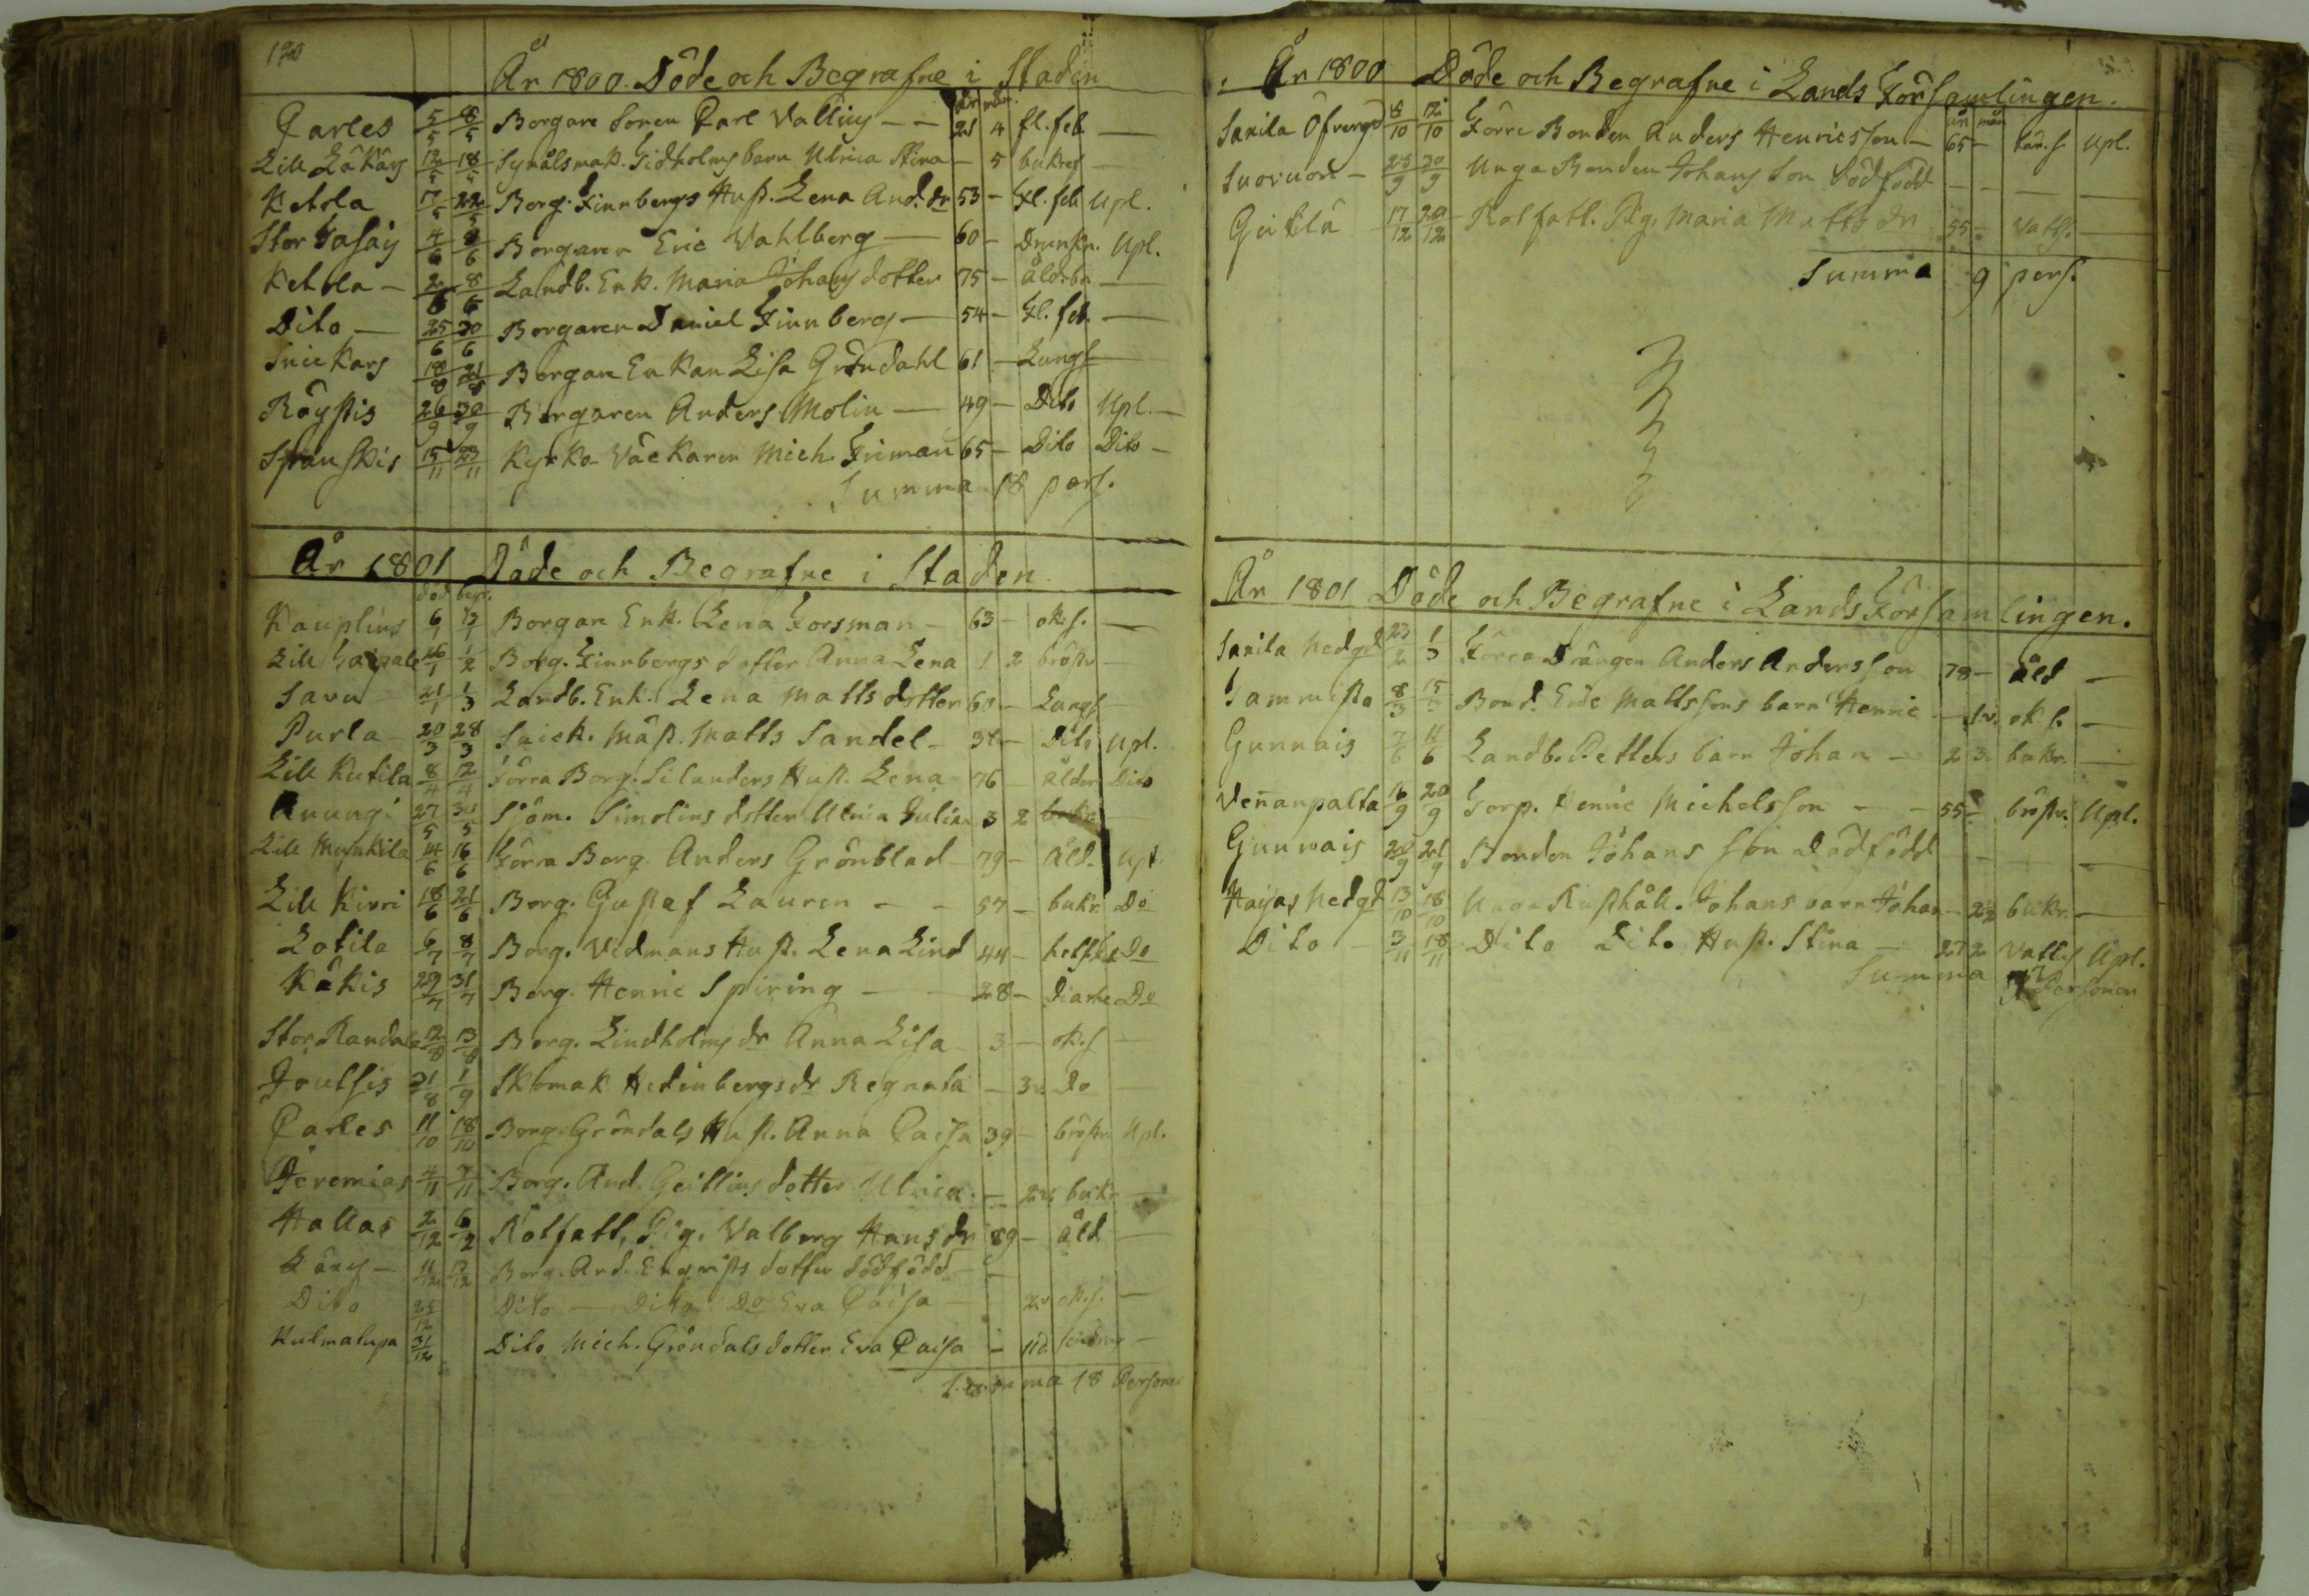 120
År 1800. Döde och Begrafne i Staden
år mån.
Carles 5/5 8/5 Borgare Sonen Carl Vallius - - 21 4 fl. feb. —
Lill Läkäŋ 12/5 18/5 barn Ulrica Stina - 5 bukref —
Ketola 17/5 22/5 Borg. Finnbergs Hust. Lena And. dr 53 - fl. feb. Upl.
Stor 4/6 8/6 Borgaren Eric Wahlberg — 60 - Drunkn. Upl.
Ketola — 2/6 8/6 Landb. Enk. Maria Johans dotter 75 - åld.br. —
Dito — 25/6 30/6 Borgaren Daniel Finnberg — 54 - fl. feb. —
Snickars 18/8 21/8 Borgare Enkan Lisa Gröndahl 61 - Lungs —
Röystis 26/9 30/9 Borgaren Anders Molin — 49 - Dito Upl. —
15/11 23/11 Kyrko-Väckaren Mich. Friman 65 - Dito Dito —
Summa 18 pers.
År 1801 Döde och Begrafne i Staden
död begr.
Kauplins 6/1 13/1 Borgare Enk. Lena Forsman — 63 - ok.s. —
Lill 26/1 1/2 Borg. Finnbergs dotter Anna Lena 1 2 bröstv —
Savu 21/1 1/3 Landb. Enk. Lena Matts dotter 60 - Lungs —
Purla 20/3 28/3 Snick. Mäst. Matts Sandel — Dito Upl.
Lill Kutila 8/4 12/4 Förra Borg. Silanders Hust. Lena 76 - ålder Dito
Arungi 27/5 30/5 Sjöm. Simolins dotter Ulrica Julian 3 2
Lill Munkila 14/6 16/6 Förra Borg. Anders Grönblad — 79 - åld. Upl.
Lill Kivri 18/6 21/6 Borg. Gustaf Lauren - - 57 - bukr. Do
Lotila 6/7 8/7 Borg. Vidmans Hust. Lena Lind 44 - Do
Käkis 29/7 31/7 Borg. Henric Spiring — 28 - Diarhe Do
Stor Randala 12/8 13/8 Borg. Lindholms dr Anna Lisa — 3 - ok.s —
Joutsis 31/8 1/9 Skomak Hedinbergs dr Regnata - 3v. Do
Carles 11/10 18/10 Borg. Gröndals Hust. Anna Caisa 39 - bröstv Upl.
Jeremias 4/11 7/11 Borg. And. Geitlins dotter Ulrica. - 2v. bukr —
Hallas 2/12 6/12 Rotfatt. Pig. Walborg Hans dr 89 - åld —
11/12 13/12 Borg. And. Engvists dotter dödfödd —
Dito 25/12 Dito — Dito Do Eva Caisa — 2v ok.s. —
Kulmalupa 31/12 Dito Mich. Gröndals dotter Eva Caisa - 11d. —
Summa 18 Personer
År 1800 Döde och Begrafne i Lands Församlingen.
år mån
Saxila Öfvergd 8/10 12/10 Förre Bonden Anders Henricsson — 65 - Upl.
Suovuori — 25/9 30/9 Unga Bonden Johans Son Dödfödd — — — —
Geitilä 17/12 20/12 Rotfatt. Pig. Maria Matts dr 55 - Vatts. —
Summa 9 pers.
År 1801 Döde och Begrafne i Lands Församlingen.
Saxila Nedgd 23/2 1/3 Förra Drängen Anders Andersson 78 - åld —
Tammisto 8/3 15/3 Bond. Eric Mattssons barn Henric — 1v. ok.s. —
Gunnais 7/6 11/6 Landb. Petters barn Johan — 2 3. bukr. —
Venanpalta 16/9 20/9 Torp. Henric Michelsson - - 55 - bröstv. Upl.
Gunnais 20/9 21/9 Bonden Johans Son Dödfödd — — —
Hayas Nedgd 13/10 18/10 Unga Rusthåll. Johans barn Johan — 2½ bukr. —
Dito — 3/11 18/11 Dito Dito Hust. Stina — 27 2 Vatts Upl.
Summa 7 Personer